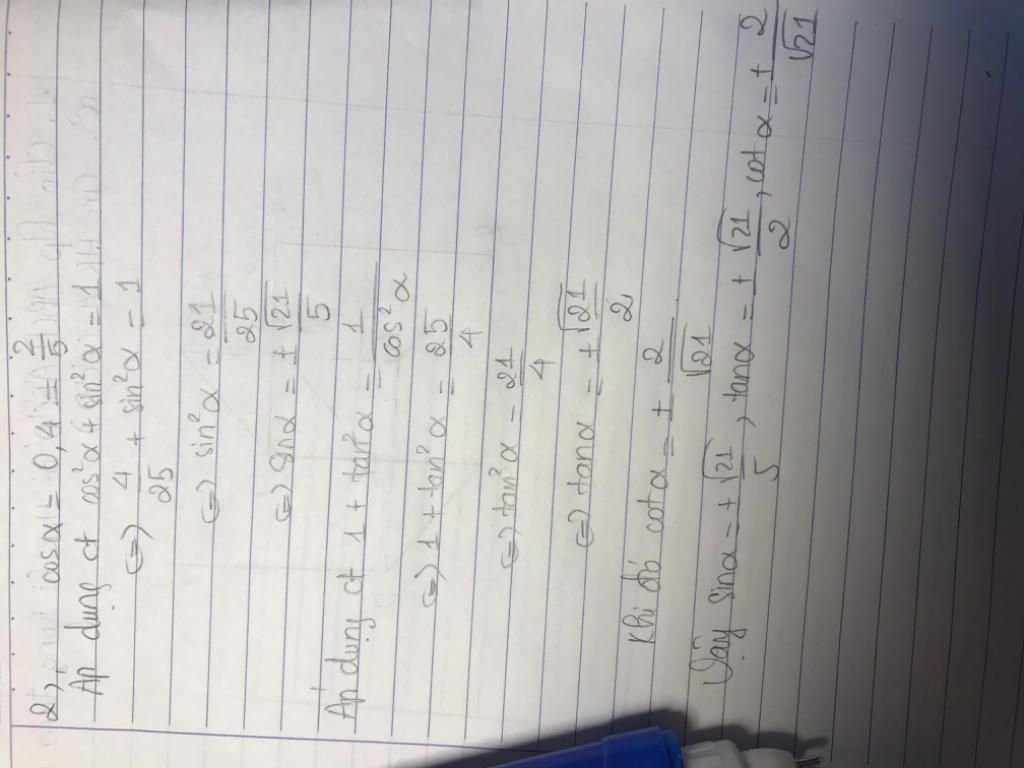 2, cosα = 0,4 = 2/5
Áp dụng ct cos²α + sin²α = 1
⇔ 4/25 + sin²α = 1
⇔ sin²α = 21/25
⇔ sinα = ± √21/5
Áp dụng ct 1 + tan²α = 1/cos²α
⇔ 1 + tan²α = 25/4
⇔ tan²α = 21/4
⇔ tanα = ± √21/2
Khi đó cotα = ± 2/√21
Vậy sinα = ± √21/5, tanα = ± √21/2, cotα = ± 2/√21